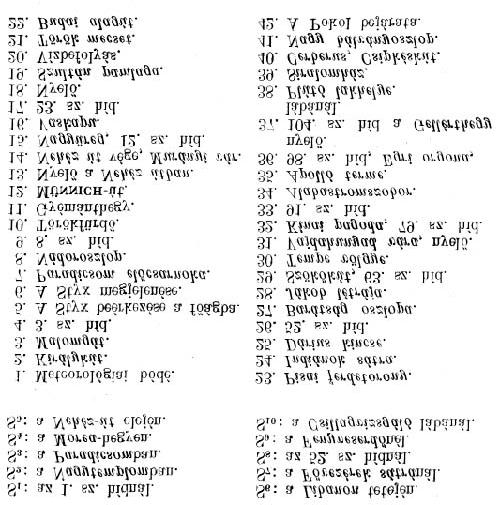 S₁: az 1. sz. hídnál.
S₂: a Nagytemplomban.
S₃: a Paradicsomban.
S₄: a Morea-hegyen.
S₅: a Nehéz-út elején.
S₆: a Libanon tetején.
S₇: a Fővezérek sátránál.
S₈: az 52. sz. hídnál.
S₉: a Fenyveserdőnél.
S₁₀: a Csillagvizsgáló lábánál.
1. Meteorológiai bódé.
2. Királykút.
3. Malomgát.
4. 3. sz. híd.
5. A Styx beérkezése a főágba.
6. A Styx megjelenése.
7. Paradicsom előcsarnoka.
8. Nádoroszlop.
9. 8. sz. híd.
10. Törökfürdő.
11. Gyémánthegy.
12. MÜNNICH-út.
13. Nyelő a Nehéz útban.
14. Nehéz út vége, Murányi vár.
15. Nagyüreg, 12. sz. híd.
16. Vaskapu.
17. 23. sz. híd.
18. Nyelő.
19. Szultán pamlaga.
20. Vízbefolyás.
21. Török mecset.
22. Budai alagút.
23. Pisai ferdetorony.
24. Indiánok sátra.
25. Dárius kincse.
26. 52. sz. híd.
27. Barátság oszlopa.
28. Jákob létrája.
29. Szökőkút, 63. sz. híd.
30. Tempe völgye.
31. Vajdahunyad vára, nyelő.
32. Kínai pagoda, 79. sz. híd.
33. 91. sz. híd.
34. Alabastromszobor.
35. Apolló terme.
36. 98. sz. híd, Egri orgona,
nyelő.
37. 104. sz. híd a Gellérthegy
lábánál.
38. Plútó lakhelye.
39. Siralomház.
40. Cerberus, Csipkéskút.
41. Nagy bálványoszlop.
42. A Pokol bejárata.